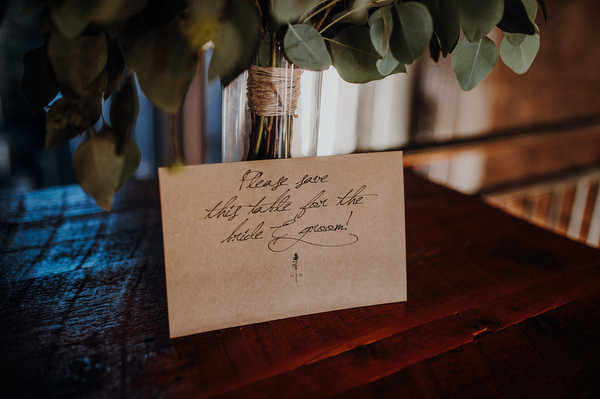 Please save
this table for the
bride & groom!